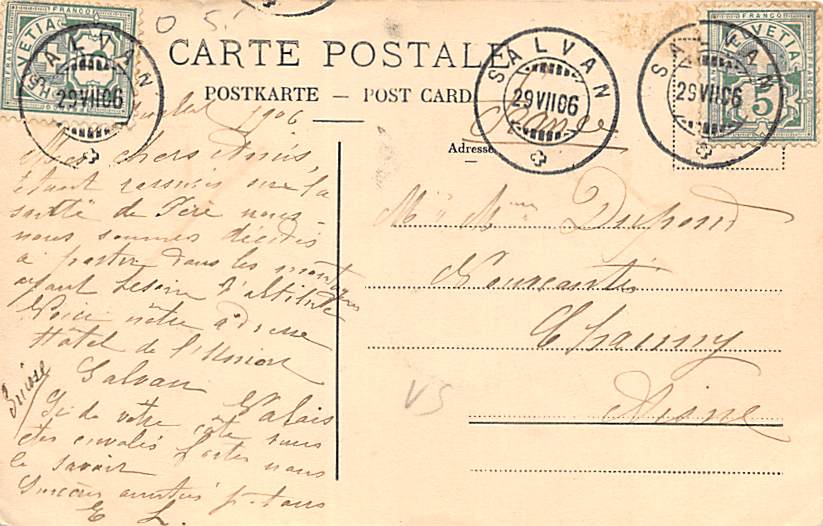 O 5!
FRANCO
HELVETIA
SALVAN
29 VII 06
CARTE POSTALE
POSTKARTE — POST CARD
SALVAN
29 VII 06
France
Adresse
FRANCO
HELVETIA
5
SALVAN
29 VII 06
Juillet 1906
Mes chers Amis,
Étant rassurés sur la
santé de Père nous
nous sommes décidés
à partir dans les montagnes
ayant besoin d'altitude
Voici notre adresse
Hôtel de l'Union
Salvan Valais
Suisse
Si de votre côté vous
êtes envolés faites nous
le savoir
Sincères amitiés p. tous
E L.
Mr Mme Dupond
Négociants
Chauny
Aisne
VS